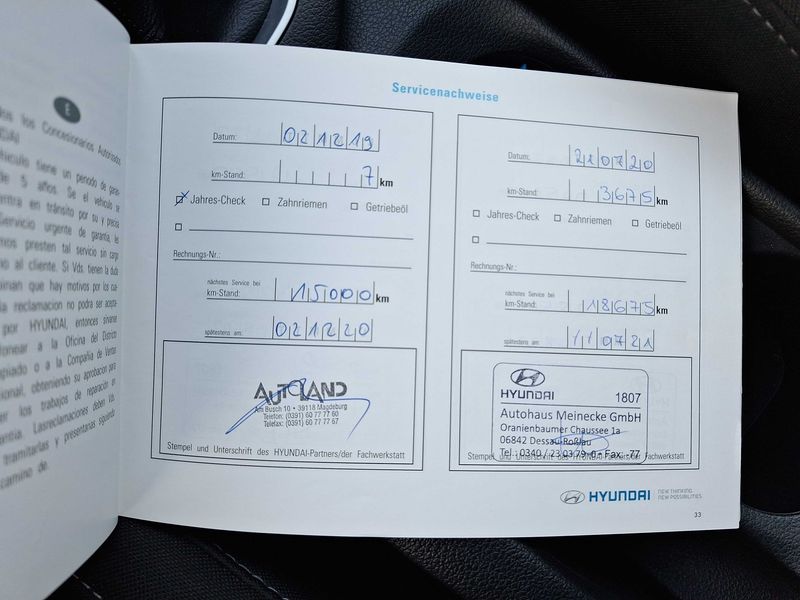 E
los Concesionarios Autorizados
tiene un periodo de garan-
5 años. Se el vehiculo se
en tránsito por su y precisa
Servicio urgente de garantía, les
presten tal servicio sin cargo
al cliente. Si Vds. tienen la duda
que hay motivos por los cua-
la reclamacion no podra ser acepta-
por HYUNDAI, entonces sirvanse
a la Oficina del Distrito
o a la Compañia de Ventas
obteniendo su aprobacion para
los trabajos de reparación en
Lasreclamaciones deben Vds.
tramitarlas y presentarlas siguiendo
camino de.
Servicenachweise
Datum: 021219
km-Stand: 7 km
Jahres-Check Zahnriemen Getriebeöl
Rechnungs-Nr.:
nächstes Service bei
km-Stand: 15000 km
spätestens am: 021220
AUTOLAND
Am Busch 10 • 39118 Magdeburg
Telefon: (0391) 60 77 77 60
Telefax: (0391) 60 77 77 67
Stempel und Unterschrift des HYUNDAI-Partners/der Fachwerkstatt
Datum: 210720
km-Stand: 3675 km
Jahres-Check Zahnriemen Getriebeöl
Rechnungs-Nr.:
nächstes Service bei
km-Stand: 18675 km
spätestens am: 0721
HYUNDAI 1807
Autohaus Meinecke GmbH
Oranienbaumer Chaussee 1a
06842 Dessau-Roßlau
Tel.: 0340 / 23 03 79-0 - Fax: -77
Stempel und Unterschrift des HYUNDAI-Partners/der Fachwerkstatt
HYUNDAI NEW THINKING.
NEW POSSIBILITIES.
33